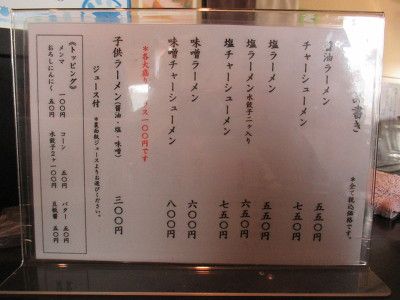 書き
＊全て税込価格です。
醤油ラーメン 五五〇円
チャーシューメン 七五〇円
塩ラーメン 五五〇円
塩ラーメン水餃子二ヶ入り 六五〇円
塩チャーシューメン 七五〇円
味噌ラーメン 六〇〇円
味噌チャーシューメン 八〇〇円
＊各大盛りプラス一〇〇円です
子供ラーメン(醤油・塩・味噌) 三〇〇円
ジュース付
＊裏面紙ジュースよりお選びください。
《トッピング》
メンマ 一〇〇円 コーン 五〇円 バター 五〇円
おろしにんにく 五〇円 水餃子2ヶ 一〇〇円 豆板醤 五〇円